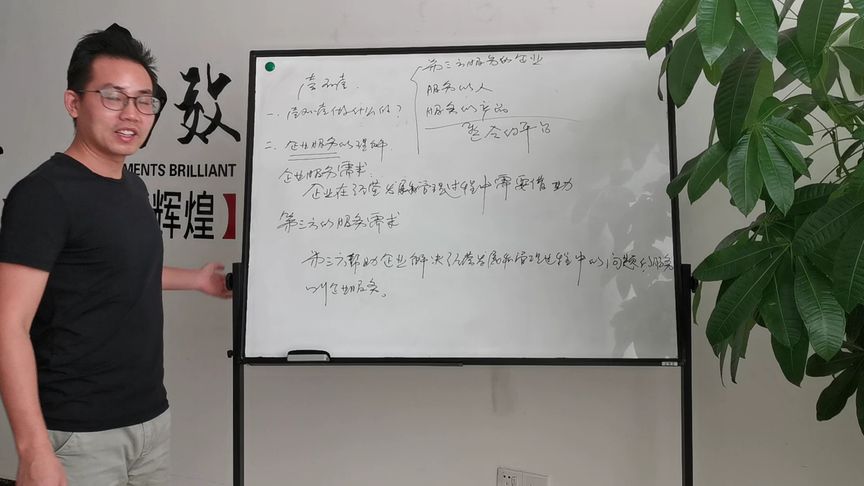 效
MENTS BRILLIANT
辉煌】
第三方服务的企业
服务的人
服务的产品
整合的平台
一、做什么的？
二、企业服务的理解
企业服务需求：
企业在经营发展和管理过程中需要借助
第三方的服务需求
第三方帮助企业解决经营发展和管理过程中的问题的服务
叫企业服务。